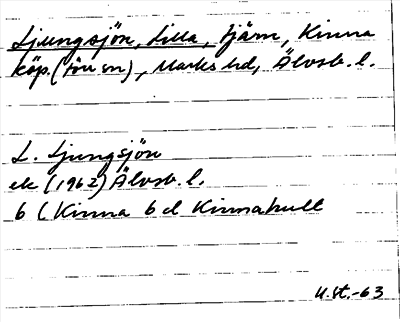 Ljungsjön, Lilla, tjärn, Kinna
köp. (förr sn), Marks hd, Älvsb. l.
L. Ljungsjön
ek (1962) Älvsb. l.
6 C Kinna 6 d Kinnahult
U.St.-63